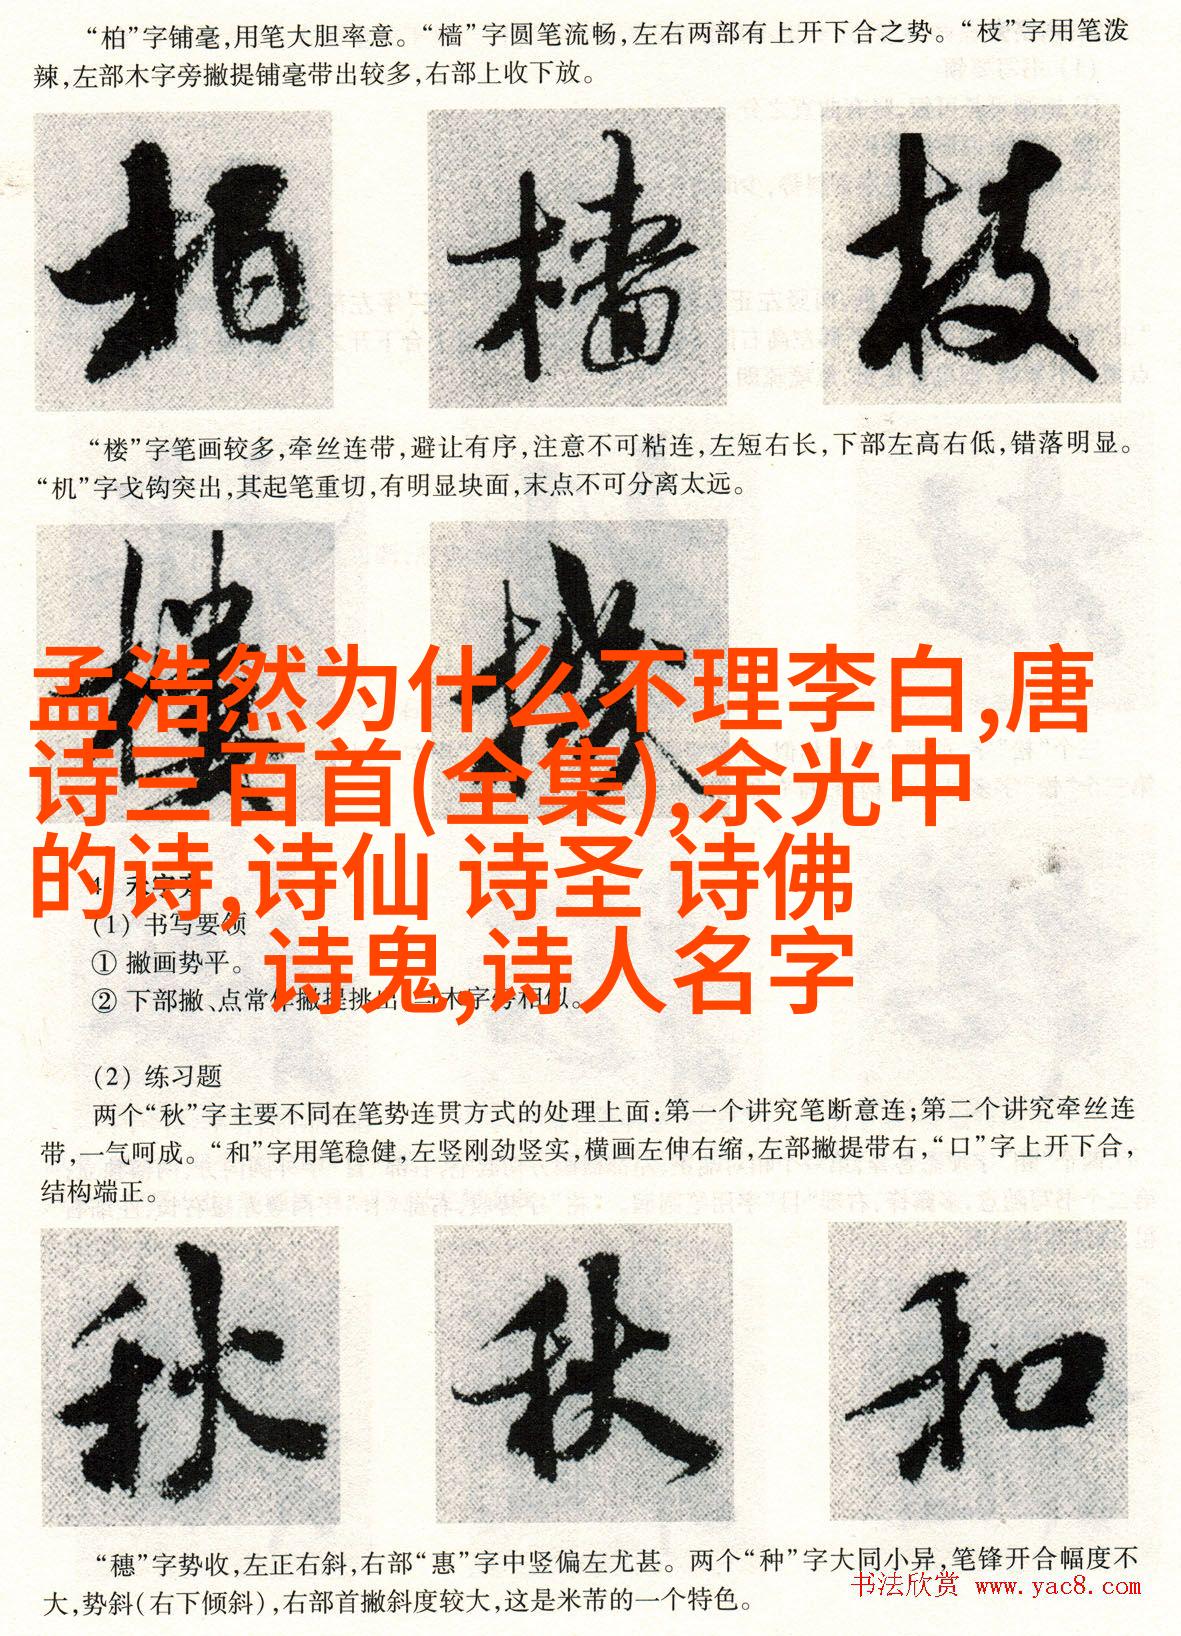 “柏”字铺毫,用笔大胆率意。“樯”字圆笔流畅,左右两部有上开下合之势。“枝”字用笔泼
辣,左部木字旁撇提铺毫带出较多,右部上收下放。
柏 樯 枝
“楼”字笔画较多,牵丝连带,避让有序,注意不可粘连,左短右长,下部左高右低,错落明显。
“机”字戈钩突出,其起笔重切,有明显块面,末点不可分离太远。
孟浩然为什么不理李白,唐
诗三百首(全集),余光中
的诗,诗仙 诗圣 诗佛
诗鬼,诗人名字
(1) 书写要领
① 撇画势平。
② 下部撇、点常作撇提挑出 与木字旁相似。
(2) 练习题
两个“秋”字主要不同在笔势连贯方式的处理上面:第一个讲究笔断意连;第二个讲究牵丝连
带,一气呵成。“和”字用笔稳健,左竖刚劲竖实,横画左伸右缩,左部撇提带右,“口”字上开下合,
结构端正。
秋 秋 和
“穗”字势收,左正右斜,右部“惠”字中竖偏左尤甚。两个“种”字大同小异,笔锋开合幅度不
大,势斜(右下倾斜),右部首撇斜度较大,这是米芾的一个特色。
书法欣赏 www.yac8.com